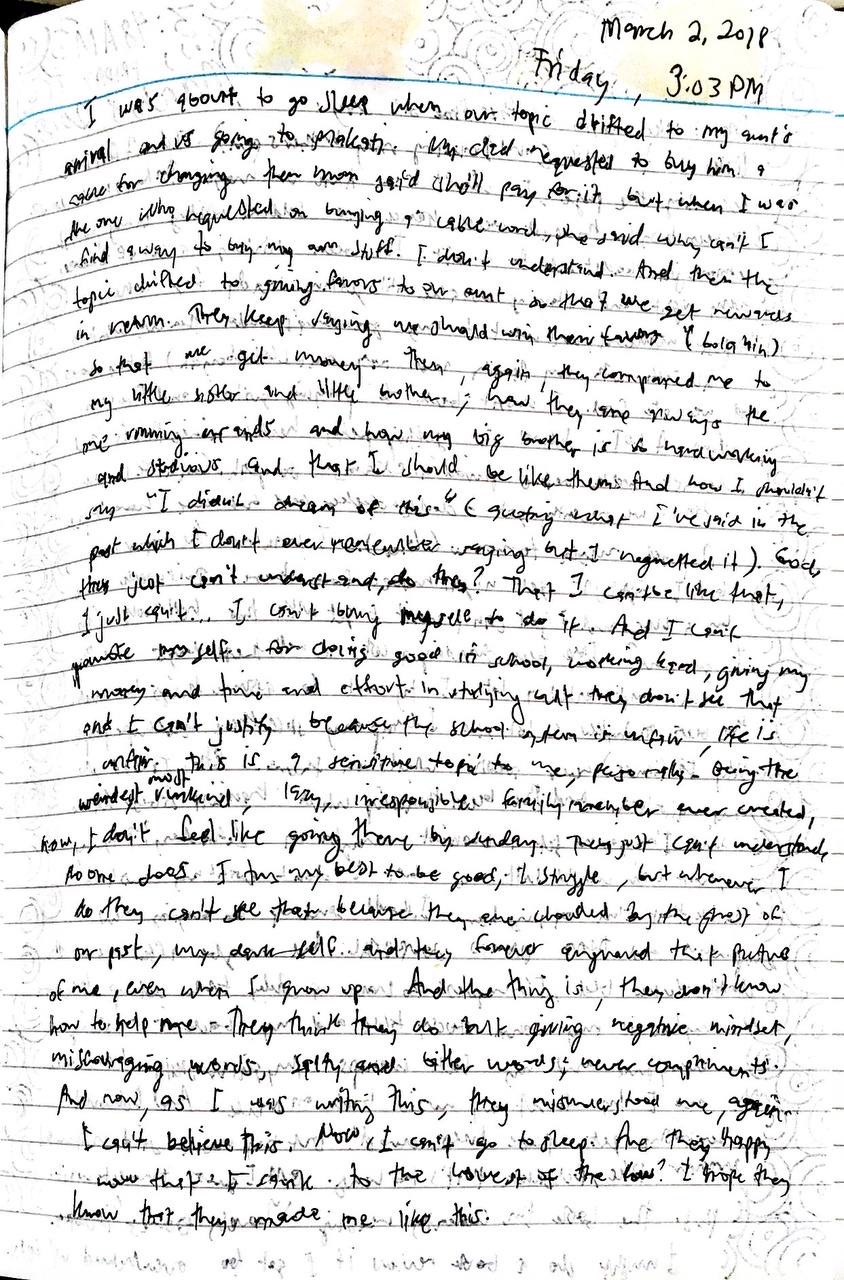 March 2, 2018
Friday, 3:03 PM
I was about to go sleep when our topic drifted to my aunt's
arrival and us going to Makati. My dad requested to buy him a
cable for charging then mom said she'll pay for it but when I was
the one who requested on buying a cable cord, she said why can't I
find a way to buy my own stuff. I don't understand. And then the
topic drifted to giving favors to our aunt, so that we get rewards
in return. They keep saying we should win their favors (
so that we get money. Then, again, they compared me to
my little sister and little brother; how they are always the
one running errands and how my big brother is so hardworking
and studious and that I should be like them. And how I shouldn't
say "I didn't dream of this" (quoting what I've said in the
past which I don't even remember saying but I regretted it). God,
they just can't understand, do they? That I can't be like that,
I just can't... I can't bring myself to do it. And I can't
promote myself for doing good in school, working hard, giving my
money and time and effort in studying but they don't see that
and I can't justify because the school system is unfair, life is
unfair. This is a sensitive topic to me, personally. Being the
weirdest, most unkind, lazy, irresponsible family member ever created,
now, I don't feel like going there by Sunday. They just can't understand,
no one does. I try my best to be good, I struggle, but whenever I
do they can't see that because they are clouded by the ghost of
our past, my dark self and they forever engraved that picture
of me, even when I grow up. And the thing is, they don't know
how to help me. They think they do but giving negative mindset,
miscouraging words, salty and bitter words; never compliments.
And now, as I was writing this, they misunderstood me, again.
I can't believe this. Now, I can't go to sleep. Are they happy
now that I sank to the lowest of the low? I hope they
know that they made me like this.